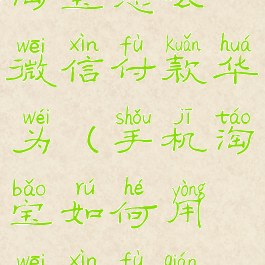 wēi xìn fù kuǎn huá
微信付款华
wéi shǒu jī táo
为（手机淘
bǎo rú hé yòng
宝如何用
wēi xìn fù qián